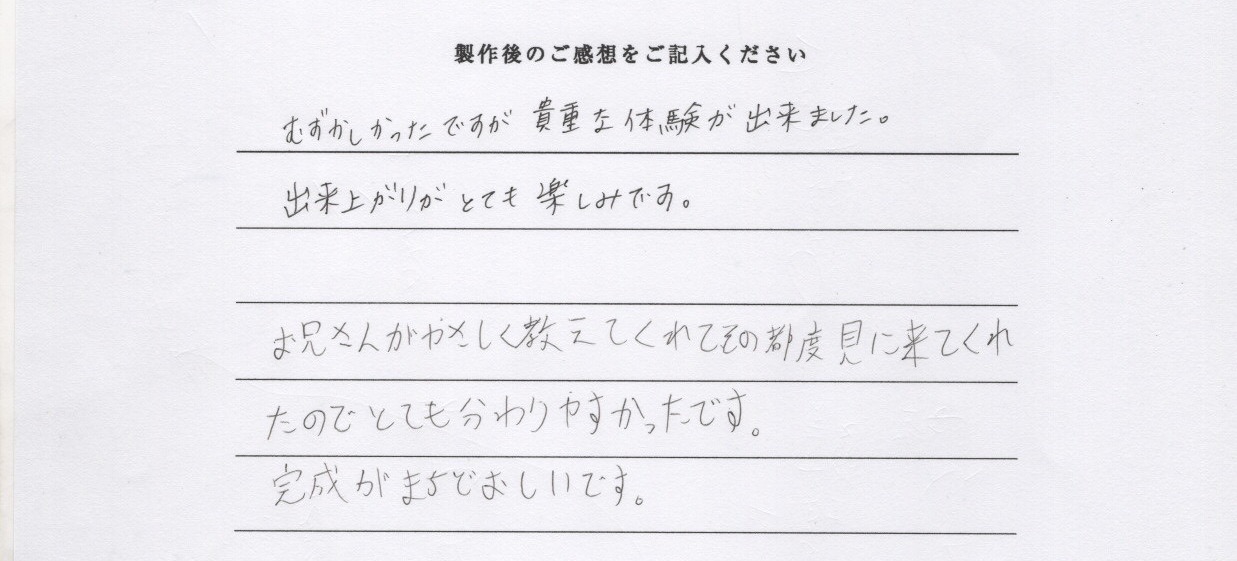 製作後のご感想をご記入ください
むずかしかったですが貴重な体験が出来ました。
出来上がりがとても楽しみです。
お兄さんがやさしく教えてくれてその都度見に来てくれ
たのでとても分わりやすかったです。
完成がまちどおしいです。